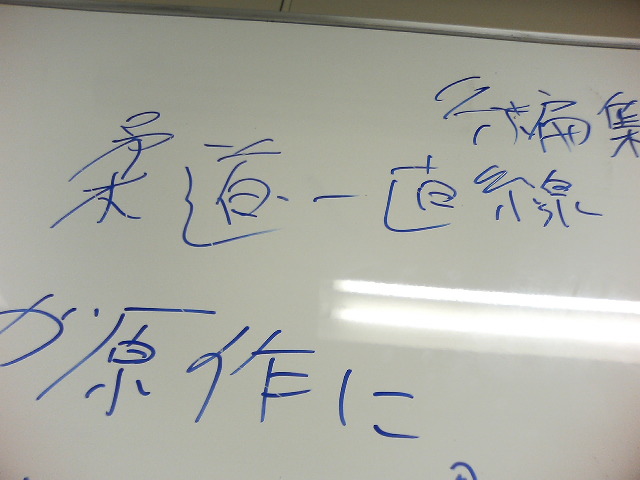 編集
柔道一直線
が原作に